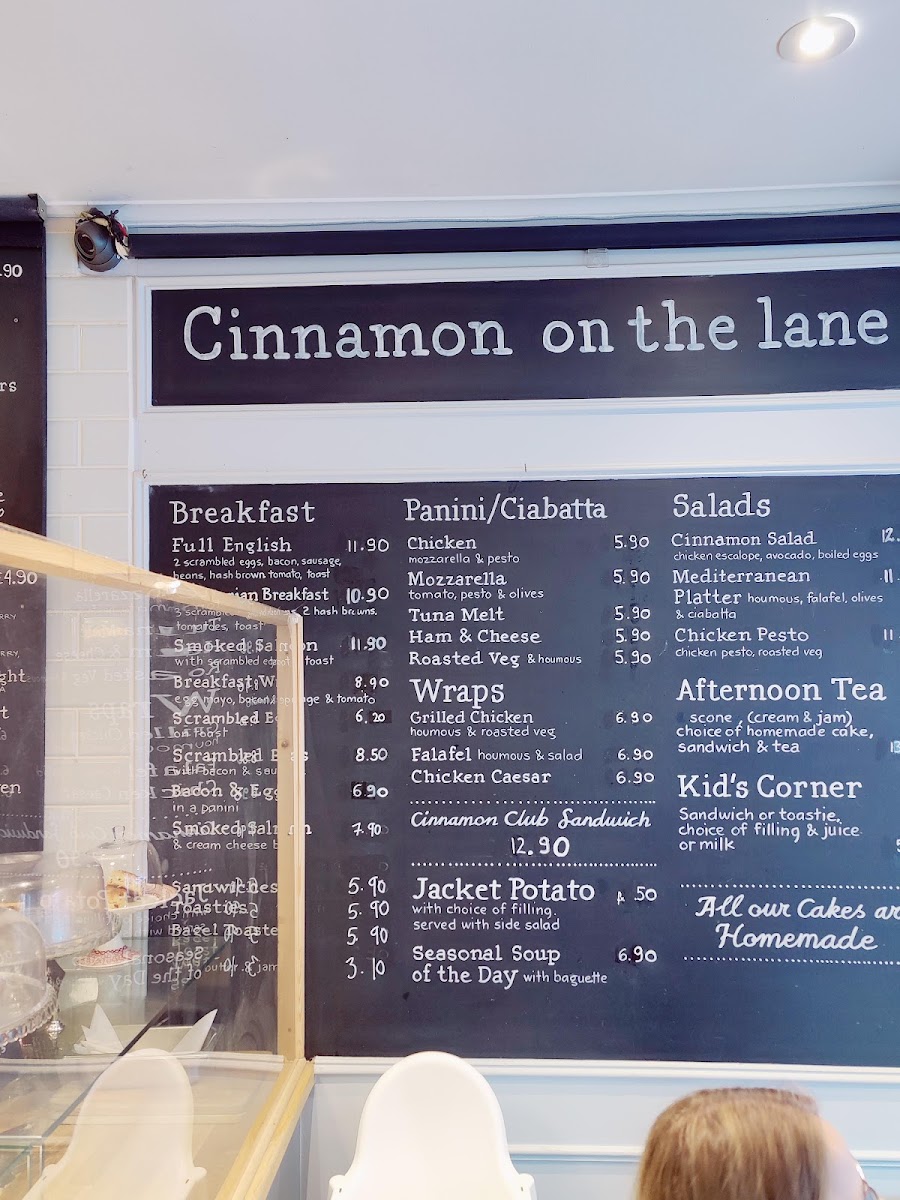 .90
rs
4.90
RRY
RRY,
ght
t
ven
Cinnamon on the lane
Breakfast
Full English 11.90
2 scrambled eggs, bacon, sausage,
beans, hash brown tomato, toast
Breakfast 10.90
2 hash browns,
tomatoes, toast
Smoked Salmon 11.90
with scrambled toast
Breakfast 8.90
egg mayo, & tomato
Scrambled 6.20
on toast
Scrambled 8.50
with bacon &
Bacon & 6.90
in a panini
Smoked Salmon 7.90
& cream cheese
Sandwiches 5.90
Toasties 5.90
Bagel Toaste 5.90
butter & jam 3.10
Panini/Ciabatta
Chicken 5.90
mozzarella & pesto
Mozzarella 5.90
tomato, pesto & olives
Tuna Melt 5.90
Ham & Cheese 5.90
Roasted Veg & houmous 5.90
Wraps
Grilled Chicken 6.90
houmous & roasted veg
Falafel houmous & salad 6.90
Chicken Caesar 6.90
Cinnamon Club Sandwich
12.90
Jacket Potato .50
with choice of filling.
served with side salad
Seasonal Soup 6.90
of the Day with baguette
Salads
Cinnamon Salad 12.
chicken escalope, avocado, boiled eggs
Mediterranean 11
Platter houmous, falafel, olives
& ciabatta
Chicken Pesto 11
chicken pesto, roasted veg
Afternoon Tea
scone, (cream & jam)
choice of homemade cake,
sandwich & tea
Kid's Corner
Sandwich or toastie,
choice of filling & juice
or milk
All our Cakes ar
Homemade